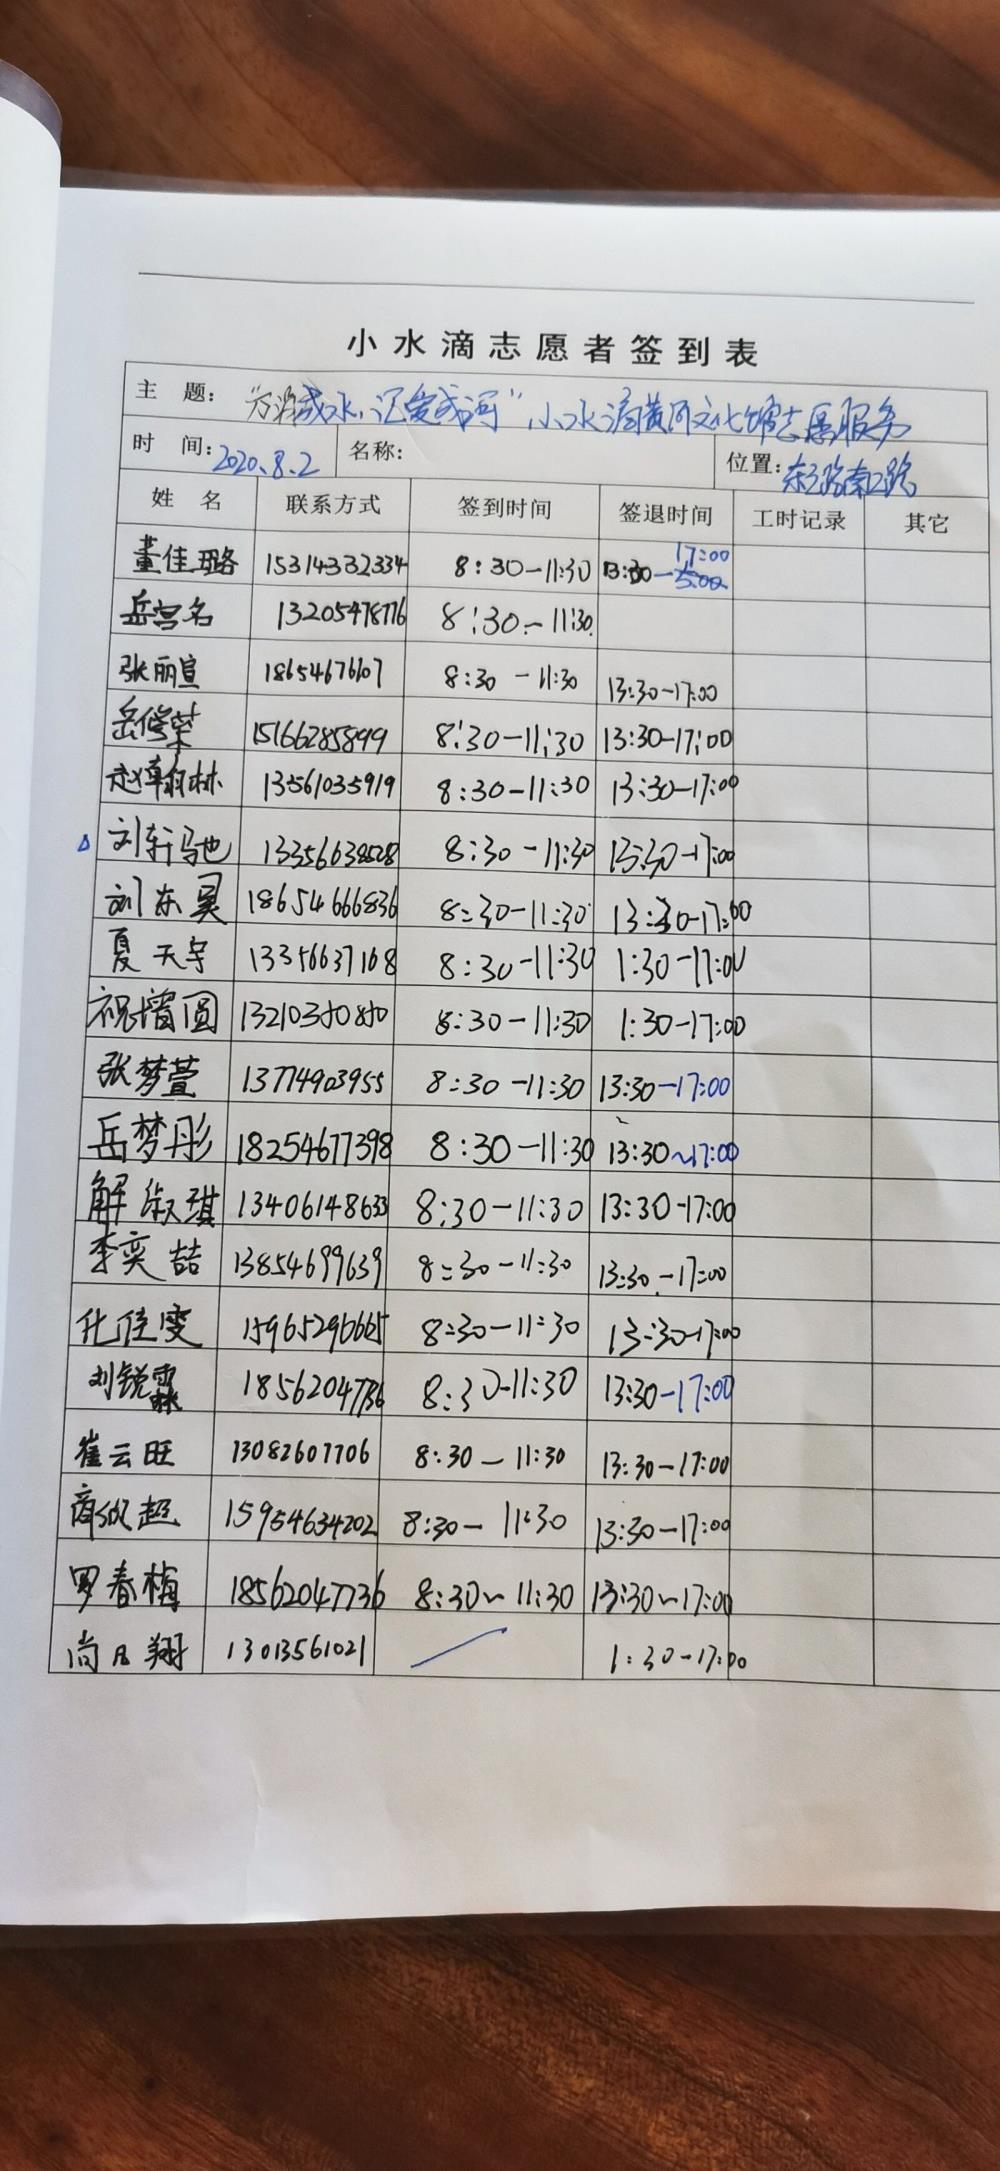 小水滴志愿者签到表
主 题： 成水，汇爱成河” 小水滴黄河文化馆志愿服务
时 间：2020.8.2 名称： 位置：东三路南二路
姓 名 联系方式 签到时间 签退时间 工时记录 其它
董佳璐 15314332334 8:30-11:30 13:30-17:00
岳宫名 13205478776 8:30-11:30
张丽宣 18654676607 8:30-11:30 13:30-17:00
岳修荣 15166285899 8:30-11:30 13:30-17:00
赵翰林 13561035919 8:30-11:30 13:30-17:00
刘轩驰 13356638528 8:30-11:30 13:30-17:00
刘东昊 18654666836 8:30-11:30 13:30-17:00
夏天宇 13356637168 8:30-11:30 1:30-17:00
祝增圆 13210350850 8:30-11:30 1:30-17:00
张梦萱 13774903955 8:30-11:30 13:30-17:00
岳梦彤 18254677398 8:30-11:30 13:30~17:00
解淑琪 13406148633 8:30-11:30 13:30-17:00
李奕喆 13854699639 8:30-11:30 13:30-17:00
化佳雯 15965296665 8:30-11:30 13:30-17:00
刘锐霖 18562047736 8:30-11:30 13:30-17:00
崔云旺 13082607706 8:30-11:30 13:30-17:00
商 超 15954634202 8:30-11:30 13:30-17:00
罗春梅 18562047736 8:30~11:30 13:30~17:00
尚凡翔 13013561021 1:30-17:00